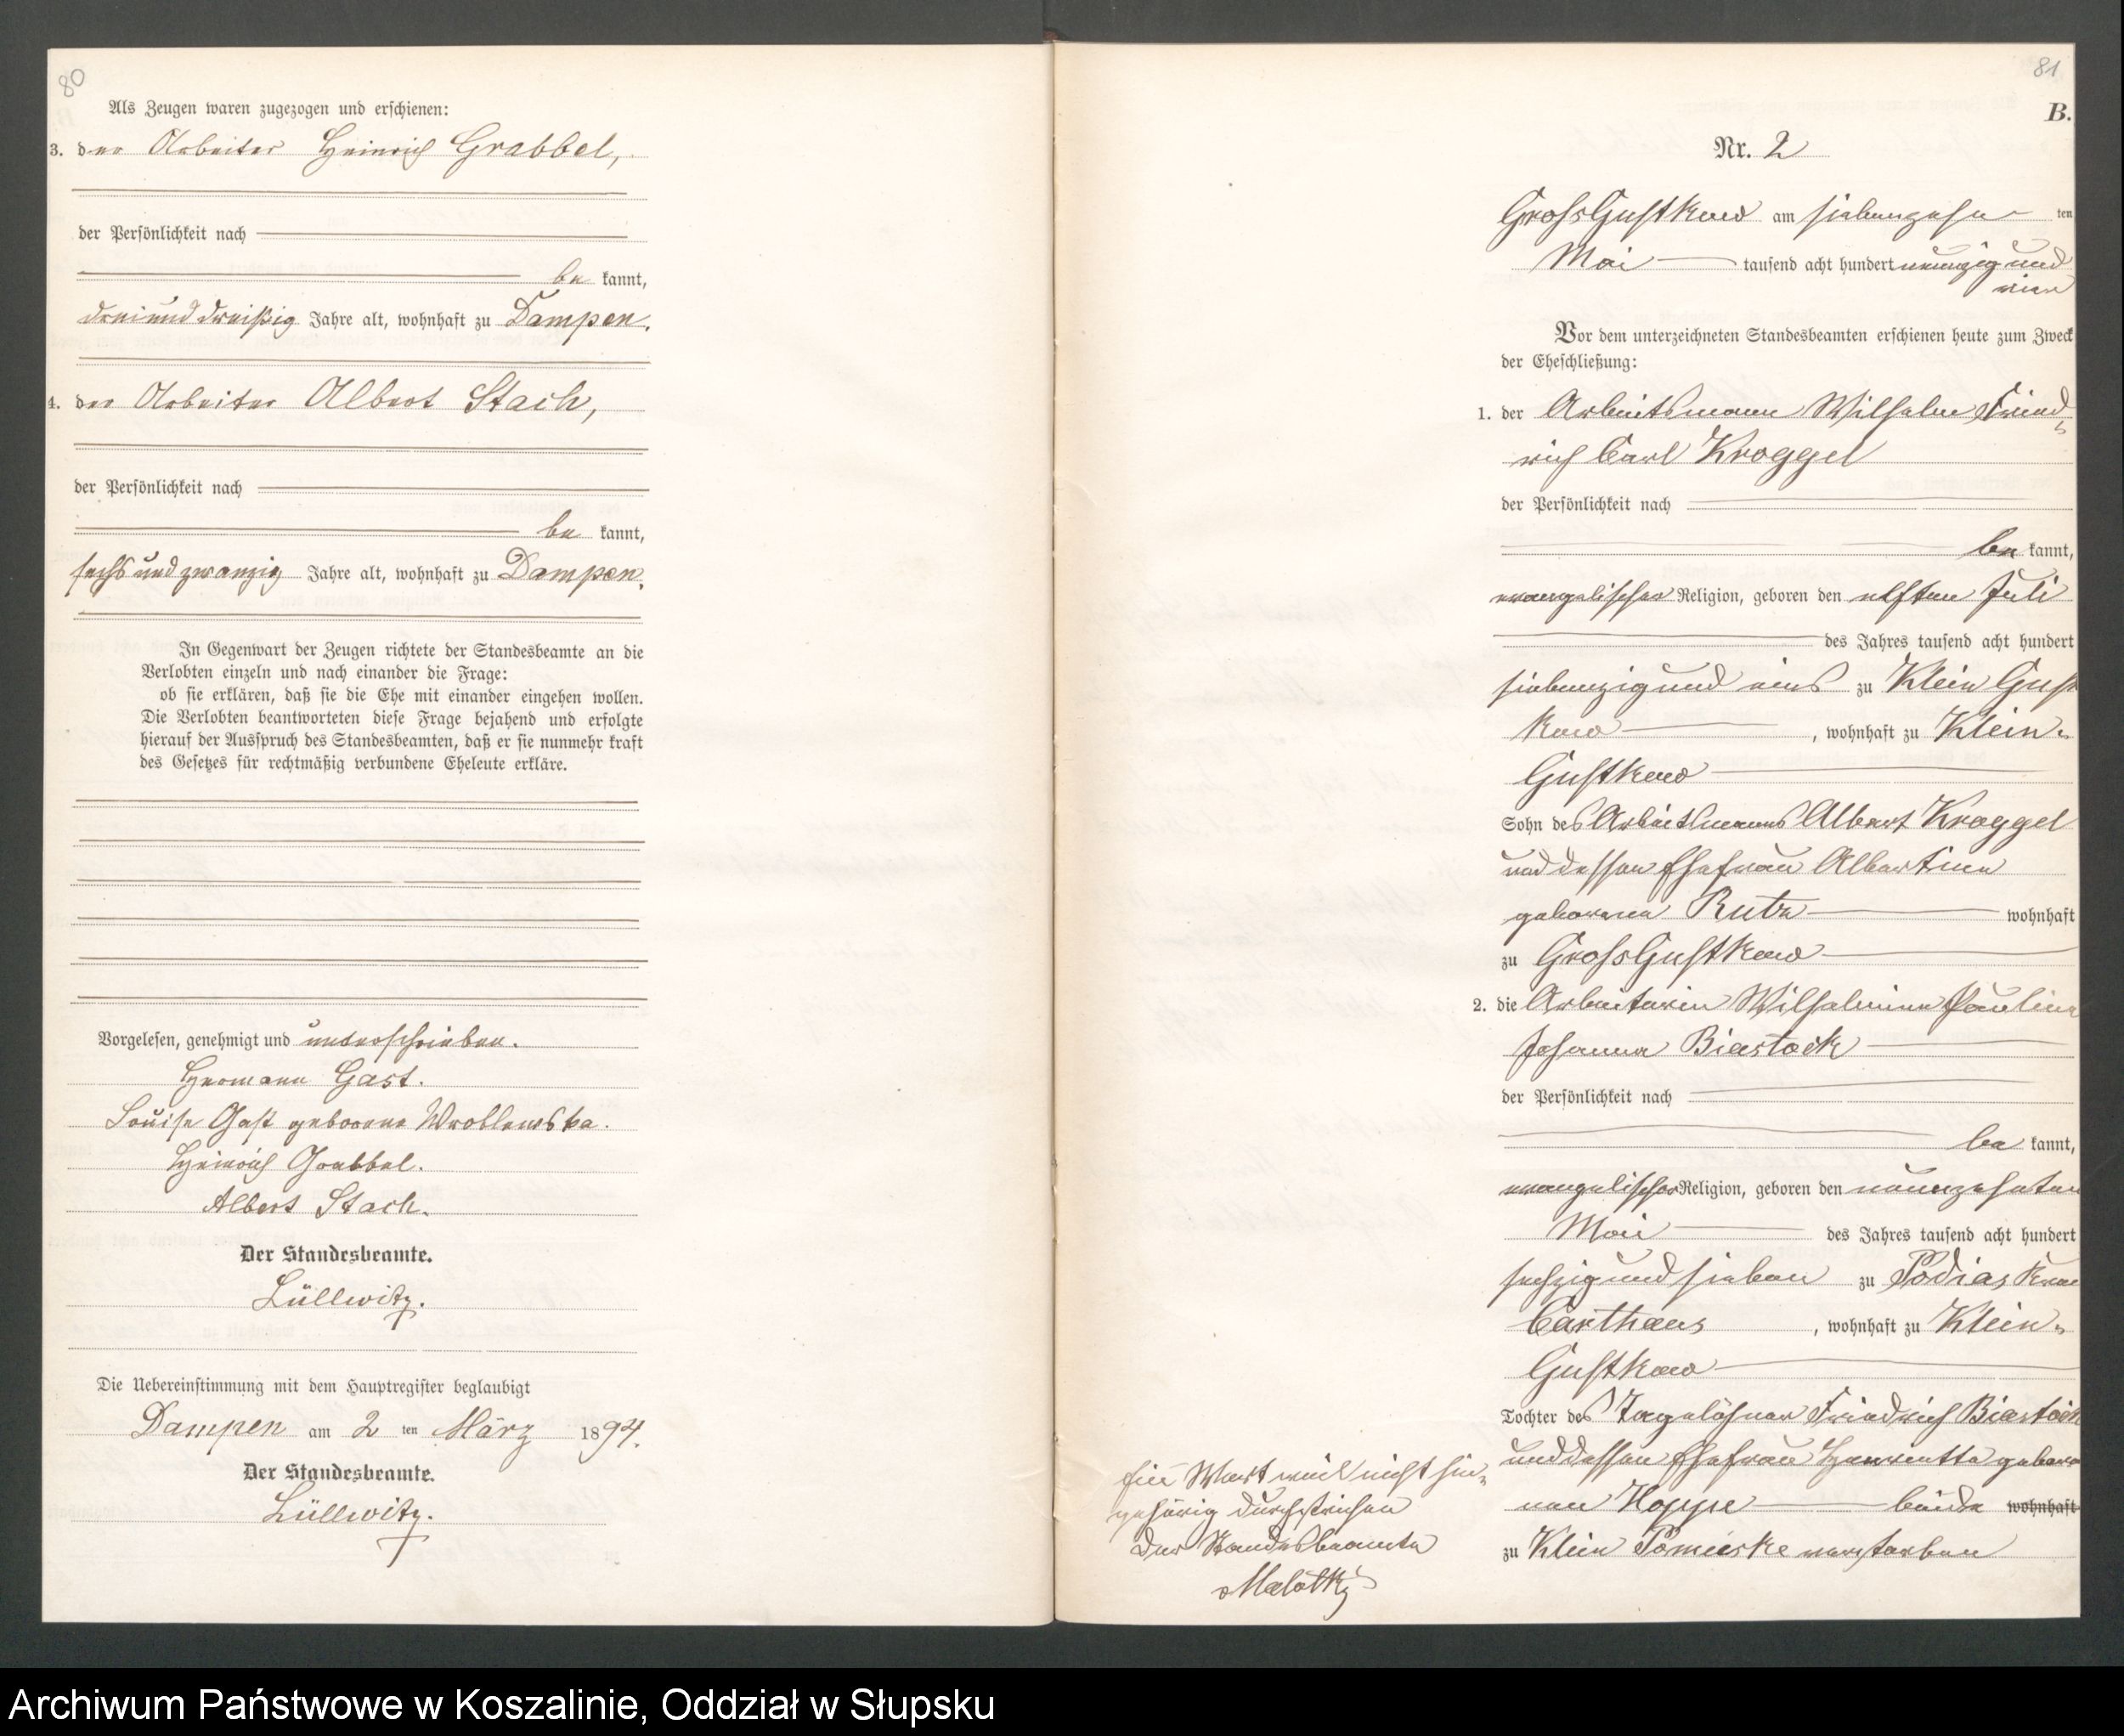 80
Als Zeugen waren zugezogen und erschienen:
3. der Arbeiter Heinrich Grabbel,
der Persönlichkeit nach
be kannt,
dreiunddreißig Jahre alt, wohnhaft zu Dampen.
4. der Arbeiter Albert Stach,
der Persönlichkeit nach
be kannt,
sechsundzwanzig Jahre alt, wohnhaft zu Dampen.
In Gegenwart der Zeugen richtete der Standesbeamte an die
Verlobten einzeln und nach einander die Frage:
ob sie erklären, daß sie die Ehe mit einander eingehen wollen.
Die Verlobten beantworteten diese Frage bejahend und erfolgte
hierauf der Ausspruch des Standesbeamten, daß er sie nunmehr kraft
des Gesetzes für rechtmäßig verbundene Eheleute erkläre.
Vorgelesen, genehmigt und unterschrieben.
Hermann Gast.
Louise Gast geborene Wroblewska.
Heinrich Grabbel.
Albert Stach.
Der Standesbeamte.
Lüllwitz.
Die Uebereinstimmung mit dem Hauptregister beglaubigt
Dampen am 2 ten März 1894.
Der Standesbeamte.
Lüllwitz.
81
B.
Nr. 2
Gross Gustkow am siebenzehn ten
Mai tausend acht hundert neunzig und
vier
Vor dem unterzeichneten Standesbeamten erschienen heute zum Zweck
der Eheschließung:
1. der Arbeitsmann Wilhelm Fried=
rich Carl Kroggel
der Persönlichkeit nach
be kannt,
evangelischer Religion, geboren den elften Juli
des Jahres tausend acht hundert
siebenzig und eins zu Klein Gust
kow, wohnhaft zu Klein=
Gustkow
Sohn des Arbeitsmanns Albert Kroggel
und dessen Ehefrau Albertine
geborene Rutz wohnhaft
zu Gross Gustkow
2. die Arbeiterin Wilhelmine Pauline
Johanna Biastock
der Persönlichkeit nach
be kannt,
evangelischer Religion, geboren den neunzehnten
Mai des Jahres tausend acht hundert
sechzig und sieben zu Podias Kreis
Carthaus, wohnhaft zu Klein=
Gustkow
Tochter des Tagelöhner Friedrich Biastock
und dessen Ehefrau Henriette gebore
nen Hoppe beide wohnhaft
zu Klein Pomeiske verstorben
Ein Wort weil nicht hin=
gehörig durchstrichen
der Standesbeamte
Malotky
Archiwum Państwowe w Koszalinie, Oddział w Słupsku